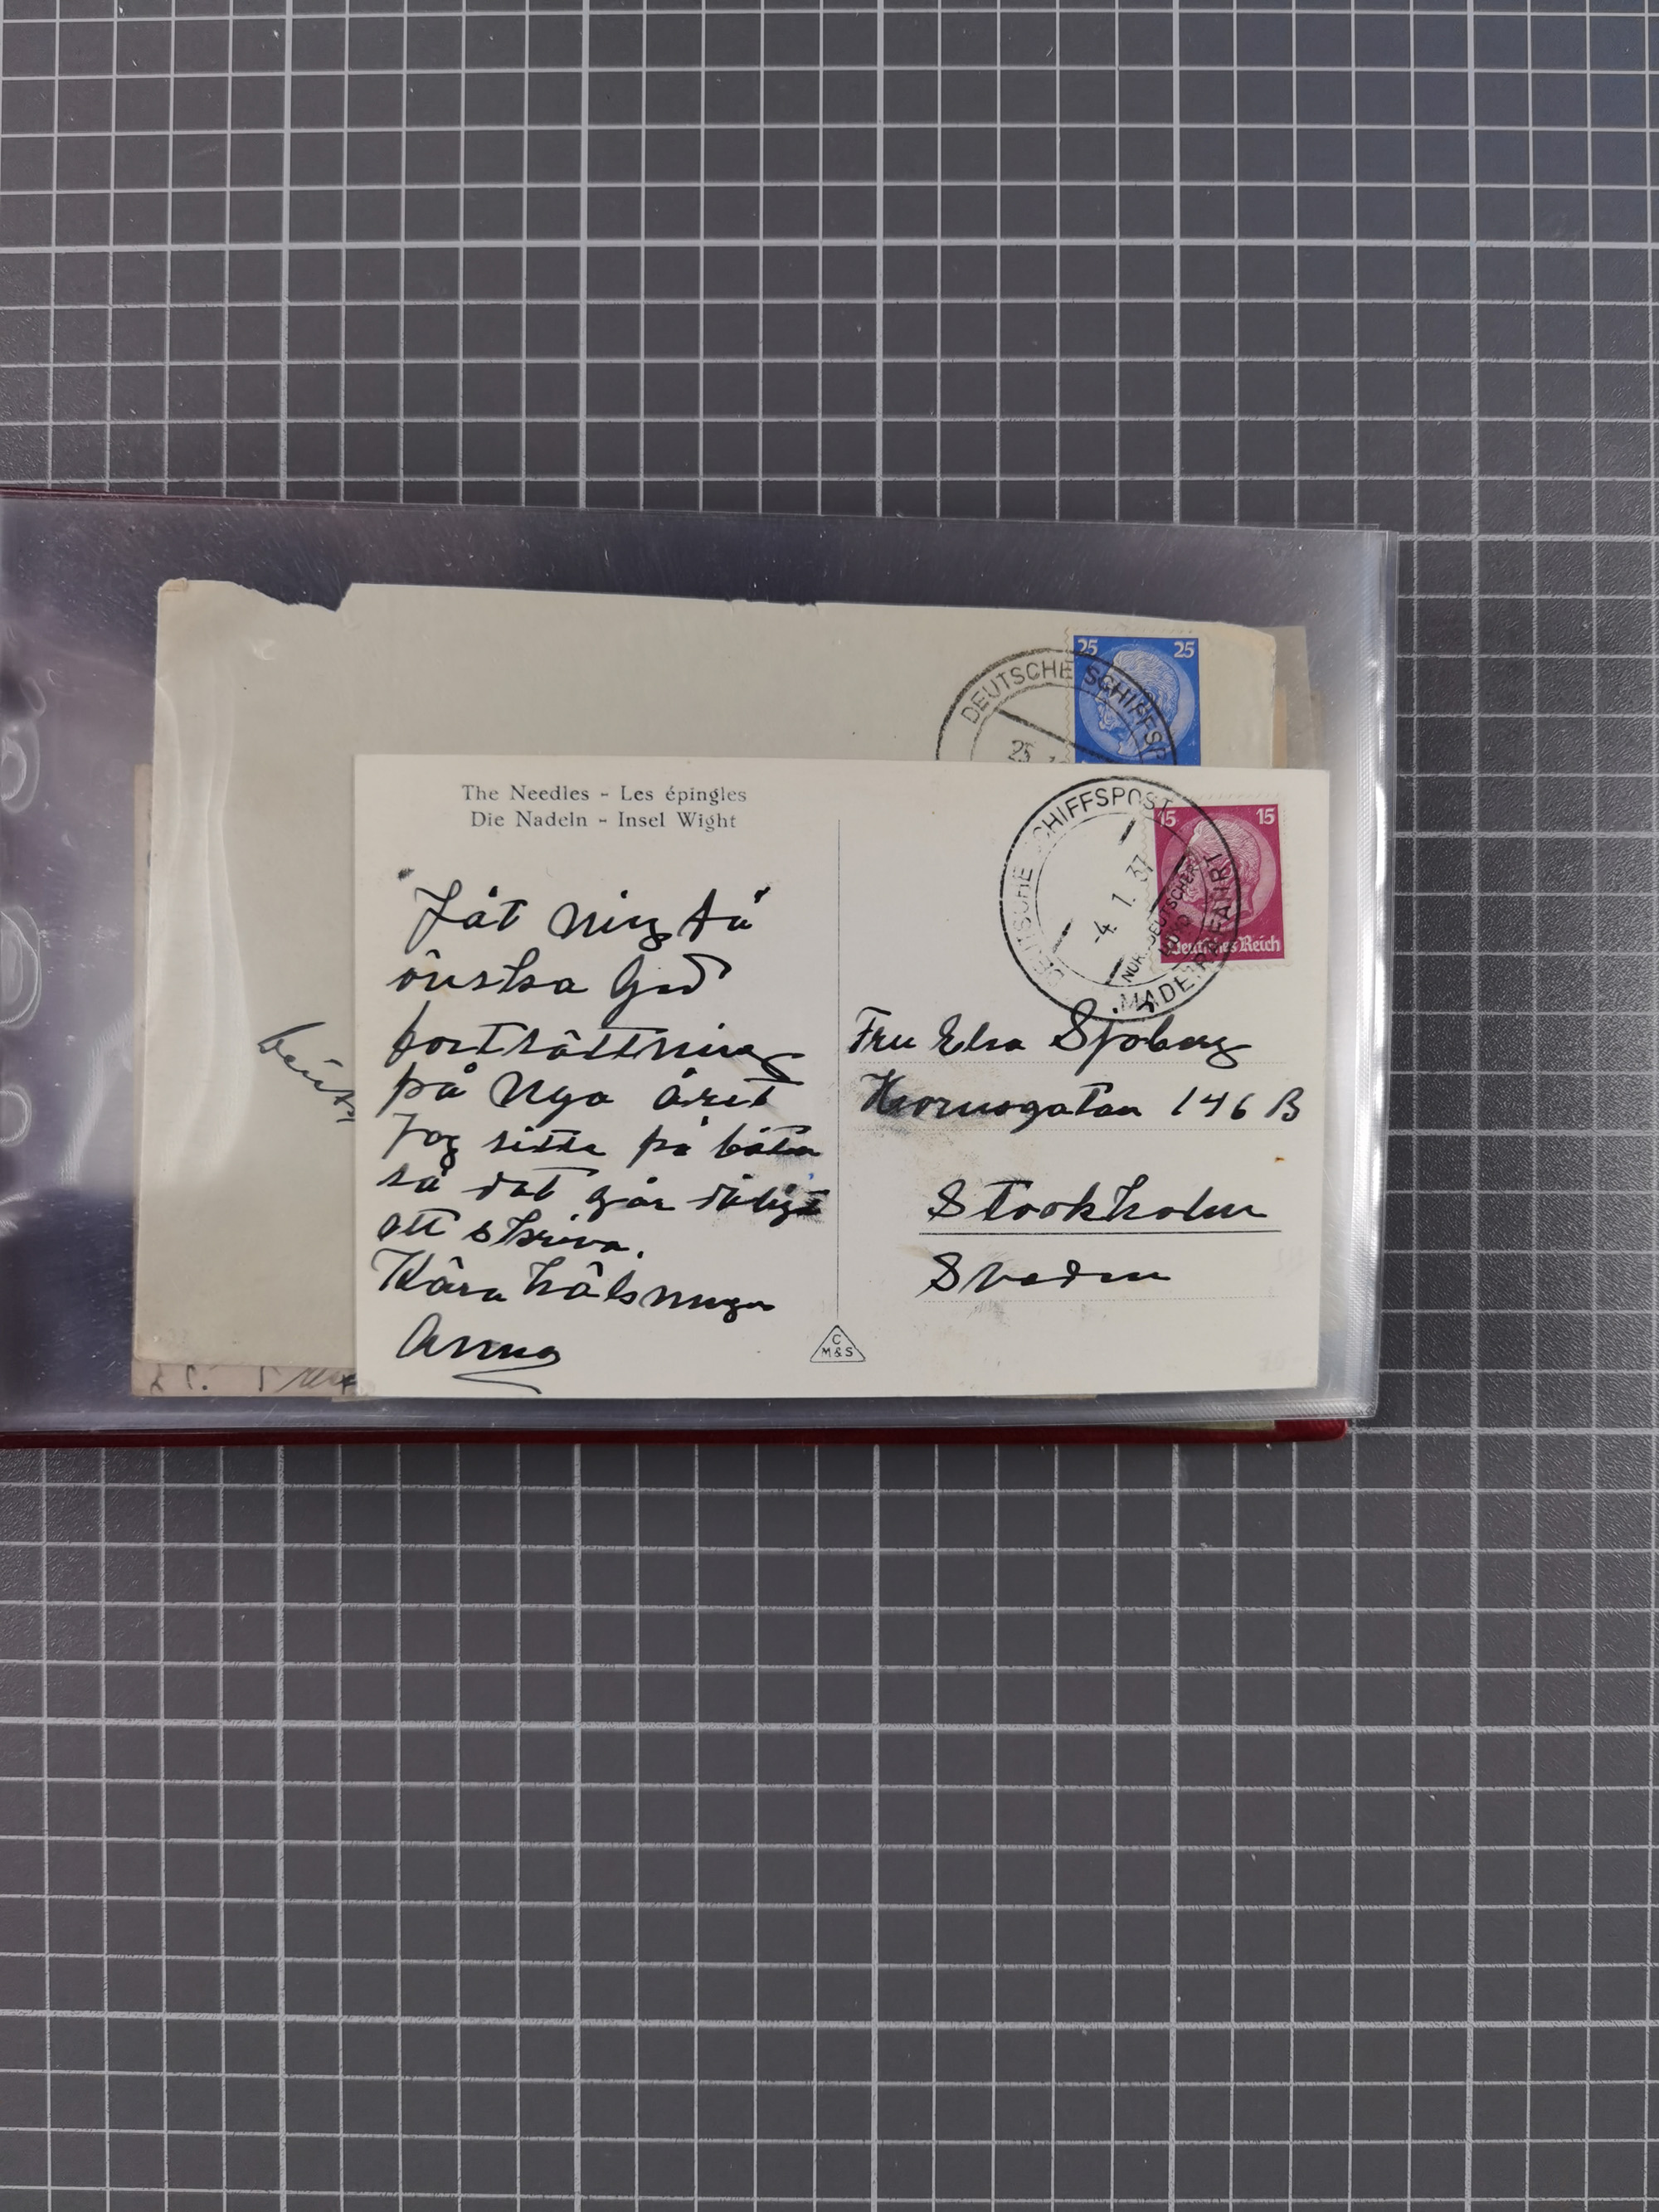 25 25
DEUTSCHE SCHIFFSP
25
The Needles - Les épingles
Die Nadeln - Insel Wight
DEUTSCHE SCHIFFSPOST
-4. 1. 37
NORDDEUTSCHER
LLOYD
MADEIRAFAHRT
15 15
Deutsches Reich
Låt mig få
önska God
fortsättning
på Nya året
Jag sitter på båten
så det går dåligt
att skriva.
Kära hälsningar
Anna
Fru Elsa Sjöberg
Hornsgatan 146 B
Stockholm
Sveden
C
M&S